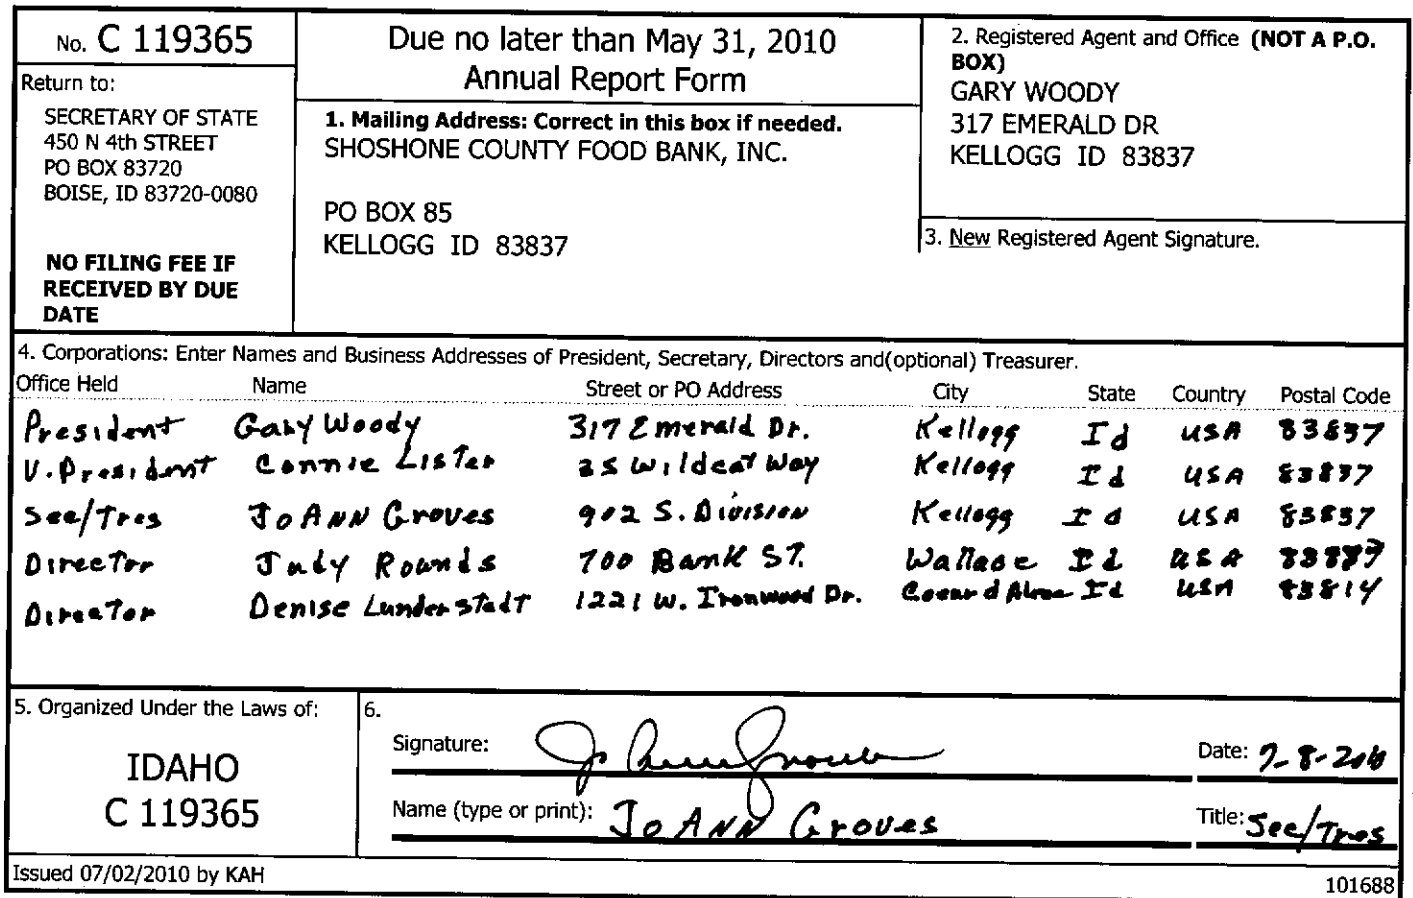 No. C 119365
Return to:
SECRETARY OF STATE
450 N 4th STREET
PO BOX 83720
BOISE, ID 83720-0080
NO FILING FEE IF
RECEIVED BY DUE
DATE
Due no later than May 31, 2010
Annual Report Form
1. Mailing Address: Correct in this box if needed.
SHOSHONE COUNTY FOOD BANK, INC.
PO BOX 85
KELLOGG ID 83837
2. Registered Agent and Office (NOT A P.O.
BOX)
GARY WOODY
317 EMERALD DR
KELLOGG ID 83837
3. New Registered Agent Signature.
4. Corporations: Enter Names and Business Addresses of President, Secretary, Directors and(optional) Treasurer.
Office Held Name Street or PO Address City State Country Postal Code
President Gary Woody 317 Emerald Dr. Kellogg Id USA 83837
V. President Connie Lister 25 Wildcat Way Kellogg Id USA 83837
Sec/Tres JoAnn Groves 902 S. Division Kellogg Id USA 83837
Director Judy Rounds 700 Bank ST. Wallace Id USA
Director Denise Lunderstadt 1221 W. Ironwood Dr. Id USA 83814
5. Organized Under the Laws of:
IDAHO
C 119365
6.
Signature: Date: 7-8-2010
Name (type or print): JoAnn Groves Title: Sec/Tres
Issued 07/02/2010 by KAH
101688